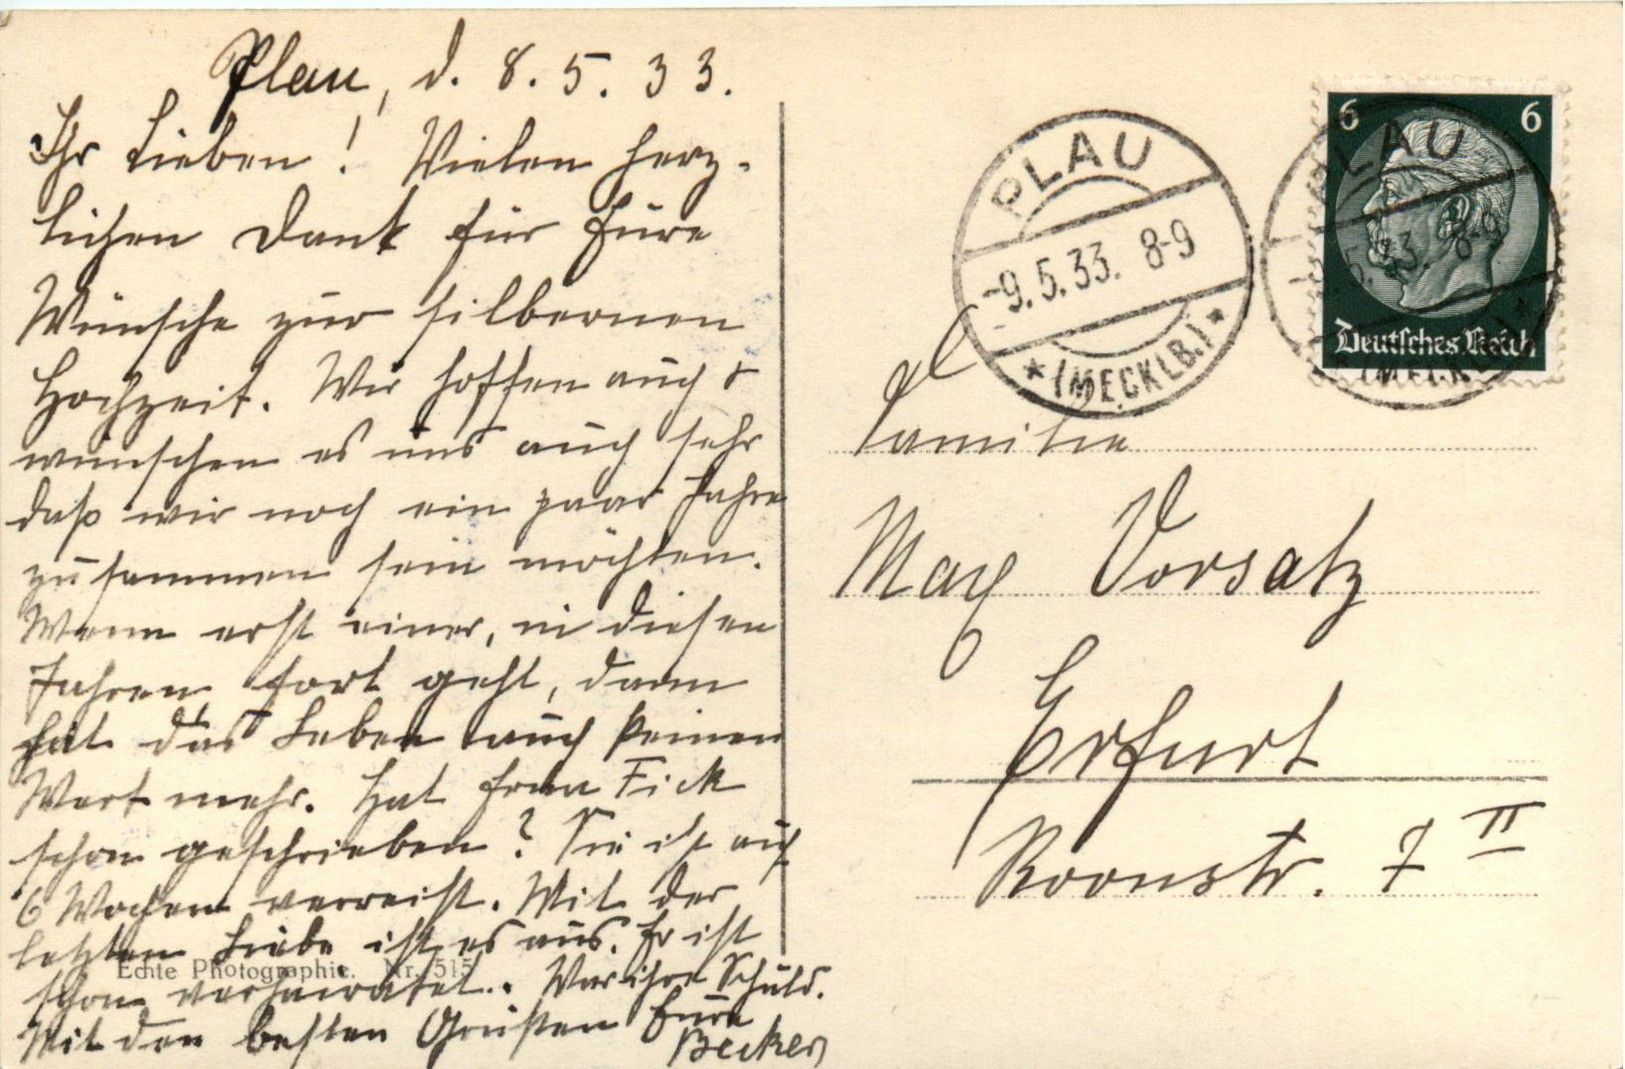 Plau, d. 8.5.33.
Ihr Lieben! Vielen herz-
lichen Dank für Eure
Wünsche zur silbernen
Hochzeit. Wir hoffen auch &
wünschen es uns auch sehr
daß wir noch ein paar Jahre
zusammen sein möchten.
Wenn erst einer, in diesen
Jahren fort geht, dann
hat das Leben auch keinen
Wert mehr. Hat Frau Fick
schon geschrieben? Sie ist auf
6 Wochen verreist. Mit der
letzten Liebe ist es aus. Er ist
schon verheiratet. War ihre Schuld.
Mit den besten Grüßen Eure
Becker
Echte Photographie. Nr. 515
PLAU
-9.5.33. 8-9
* (MECKLB.) *
6 6
Deutsches Reich
PLAU
5.33. 8-9
(MECKLB.) *
Familie
Max Vorsatz
Erfurt
Roonstr. 7 II